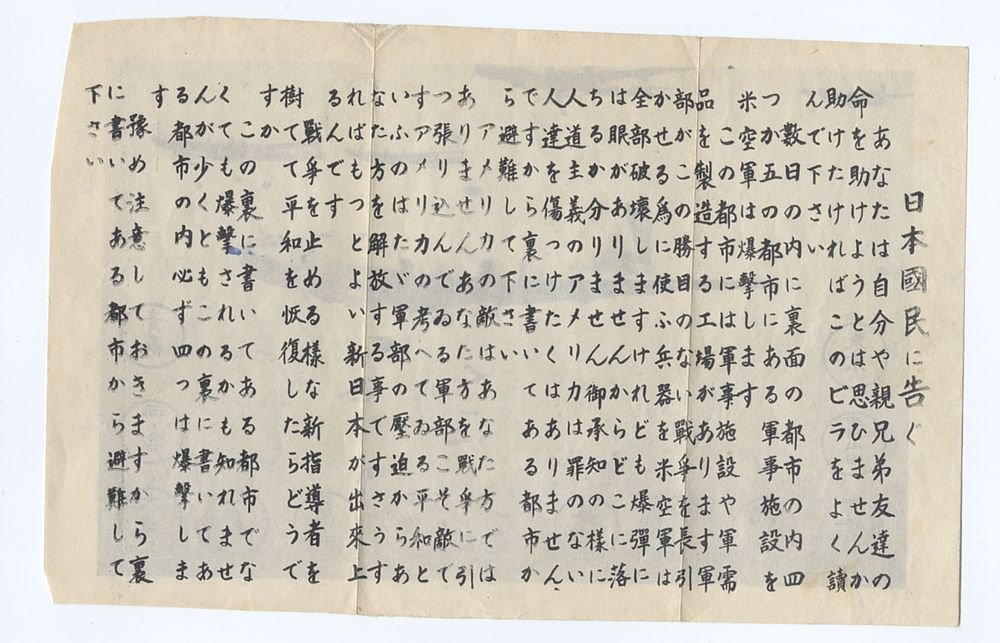 日本國民に告ぐ
あなたは自分や親兄弟友達の
命を助けようとは思ひませんか
助けたければこのビラをよく讀
んで下さい
数日の内に裏面の都市の内四
つか五つの都市にある軍事施設を
米空軍は爆撃します
この都市には軍事施設や軍需
品を製造する工場があります軍
部がこの勝目のない戦争を長引
かせる爲に使ふ兵器を米空軍は
全部破壞しますけれども爆彈に
は眼がありませんからどこに落
ちるか分りません御承知の様に
人道主義のアメリカは罪のない
人達を傷つけたくはありません
ですから裏に書いてある都市か
ら避難して下さい
アメリカの敵はあなた方では
ありませんあなた方を戦争に引
つ張り込んでゐる軍部こそ敵で
すアメリカの考へてゐる平和と
いふのはたゞ軍部の壓迫からあ
なた方を解放する事ですさうす
ればもつとよい新日本が出來上
るんです
戦争を止める様な新指導者を
樹てて平和を恢復したらどうで
すか
この裏に書いてある都市でな
くても爆撃されるかも知れませ
んが少くともこの裏に書いてあ
る都市の内必ず四つは爆撃しま
す
豫め注意しておきますから裏
に書いてある都市から避難して
下さい